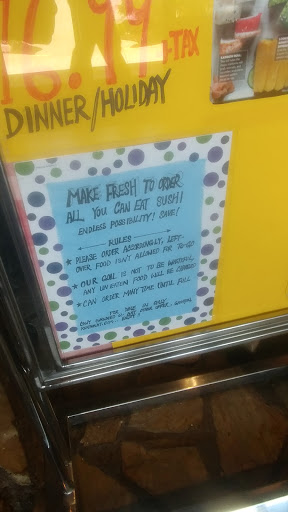 16.99 +TAX
DINNER/HOLIDAY
MAKE FRESH TO ORDER
ALL YOU CAN EAT SUSHI
ENDLESS POSSIBILITY! SAVE!
RULES
★ PLEASE ORDER ACCORDINGLY, LEFT-
OVER FOOD ISN'T ALLOWED FOR TO-GO
★ OUR GOAL IS NOT TO BE WASTEFUL,
ANY UNEATEN FOOD WILL BE CHARGED
★ CAN ORDER MANY TIME UNTIL FULL
DINE IN ONLY